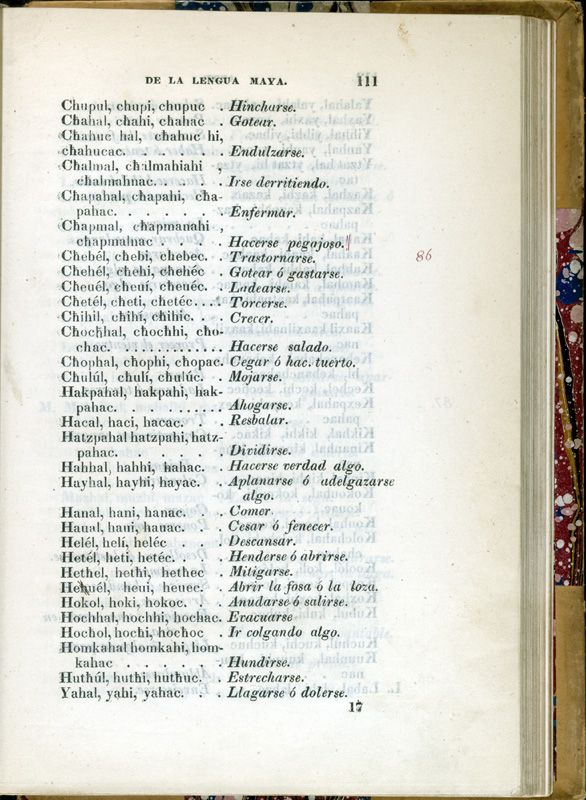 DE LA LENGUA MAYA. 111
Chupul, chupi, chupuc . Hincharse.
Cħahal, cħahi, cħahac . Gotear.
Cħahuc hal, cħahuc hi,
cħahucac. . . . . . . Endulzarse.
Cħalmal, cħalmahiahi ,
cħalmahnac. . . . . Irse derritiendo.
Cħapahal, cħapahi, cħa-
pahac. . . . . . . Enfermar.
Cħapmal, cħapmanahi ,
cħapmalnac . . . . Hacerse pegajoso.
86
Chebél, chebi, chebec. . Trastornarse.
Chehél, chehi, chehéc . Gotear ó gastarse.
Cheuél, cheuí, cheuéc. . Ladearse.
Chetél, cheti, chetéc. . . . Torcerse.
Chihil, chihí, chihic. . . Crecer.
Chocħhal, chocħhi, cho-
chac. . . . . . . . . . . . Hacerse salado.
Cħophal, cħophi, cħopac. Cegar ó hac. tuerto.
Chulúl, chulí, chulúc. . Mojarse.
Hakpahal, hakpahi, hak-
pahac. . . . . . . . . . Ahogarse.
Hacal, haci, hacac. . . Resbalar.
Hatzpahal hatzpahi, hatz-
pahac. . . . . . . Dividirse.
Hahhal, hahhi, hahac. . Hacerse verdad algo.
Hayhal, hayhi, hayac. . Aplanarse ó adelgazarse
algo.
Hanal, hani, hanac. . . Comer
Haual, haui, hauac. . . Cesar ó fenecer.
Helél, helí, heléc . . . Descansar.
Hetél, heti, hetéc. . . . Henderse ó abrirse.
Hethel, hethi, hethec . Mitigarse.
heui, heuec. . . Abrir la fosa ó la loza.
Hokol, hoki, hokoc. . . Anudarse ó salirse.
Hochhal, hochhi, hochac. Evacuarse
Hochol, hochi, hochoc . Ir colgando algo.
Homkahal homkahi, hom-
kahac . . . . . . . Hundirse.
Huthúl, huthi, huthuc. . Estrecharse.
Yahal, yahi, yahac. . . Llagarse ó dolerse.
17